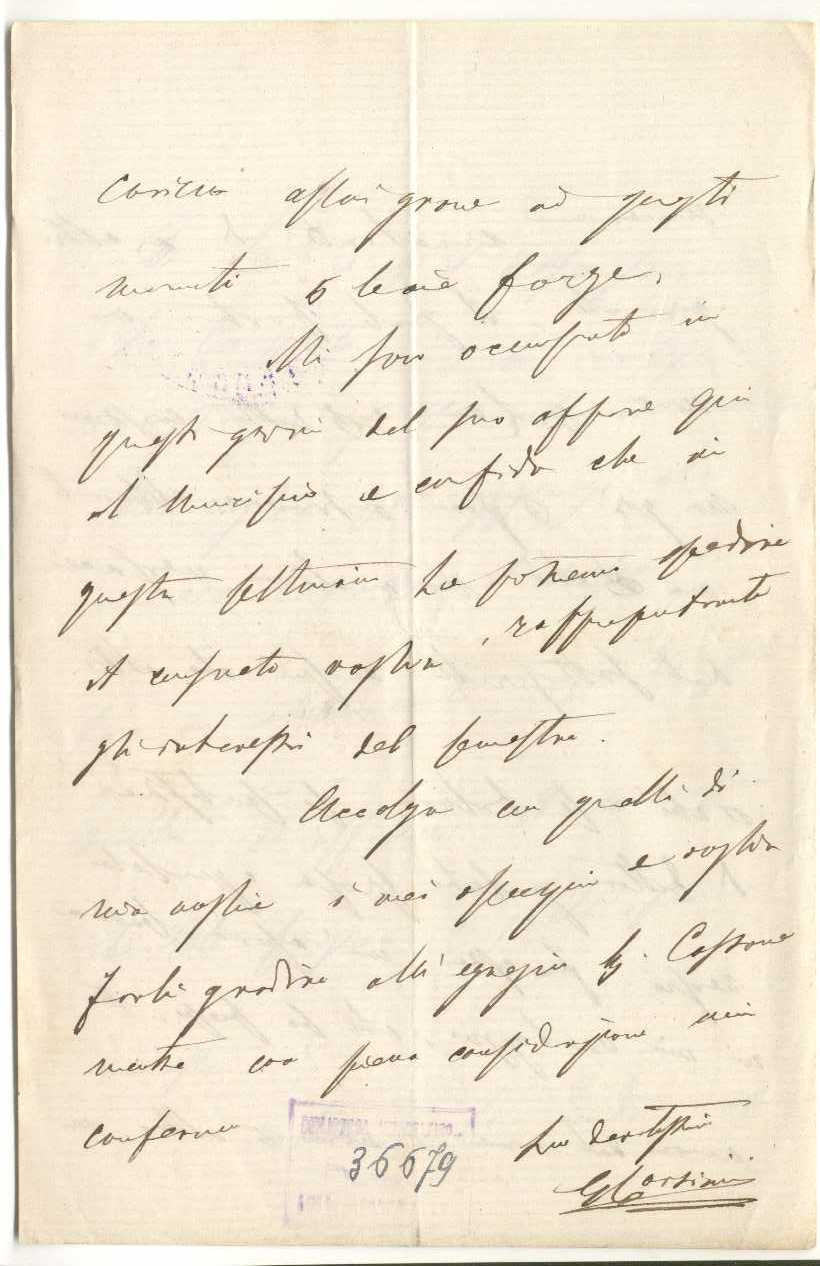 carico assai grave ad questi
momenti le mie forze.
Mi sono occupato in
questi giorni del suo affare qui
al Municipio e confido che in
questa settimana Le potremo spedire
il consueto vaglia, rappresentante
gli interessi del semestre.
Accolga con quelli di
mia moglie i miei ossequi e voglia
farli gradire alli egregi Cassone
mentre con piena considerazione mi
confermo
36679
Suo
GCorsini